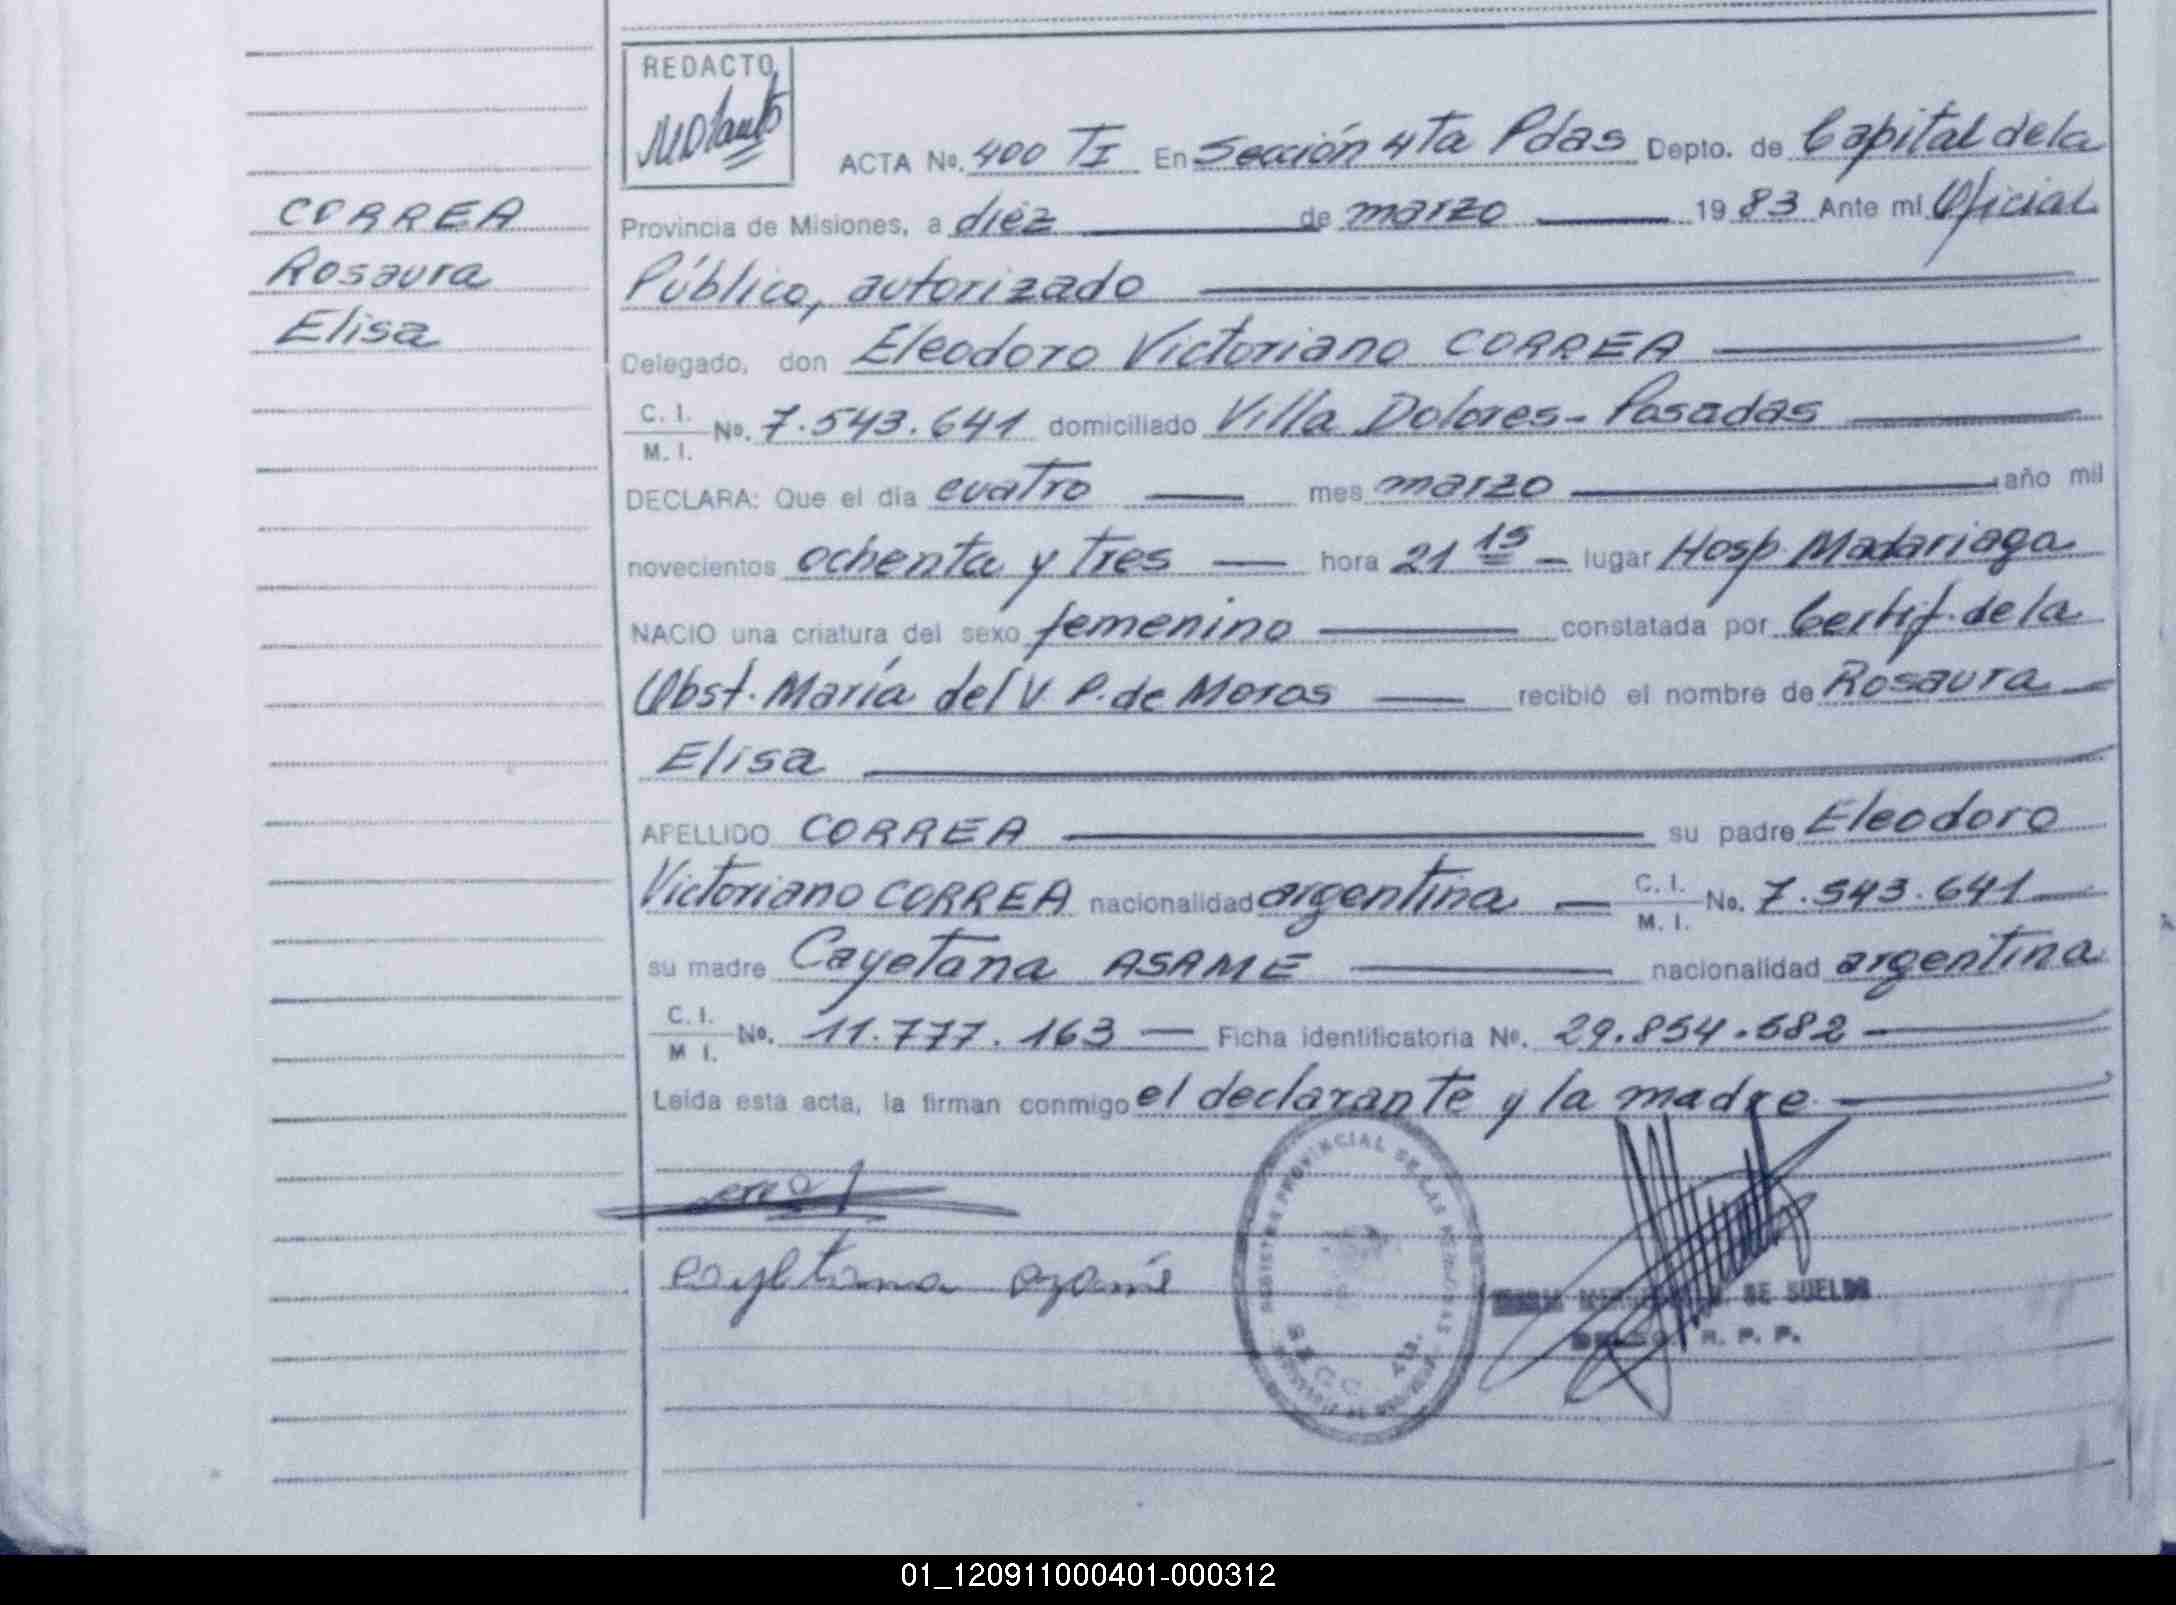 REDACTO
ACTA No. 400 TI En Sección 4ta Pdas Depto. de Capital de la
CORREA
Provincia de Misiones, a diez de marzo 19 83 Ante mi Oficial
Rosaura
Público, autorizado
Elisa
Delegado, don Eleodoro Victoriano CORREA
C. I.
M. I.
No. 7.543.641 domiciliado Villa Dolores - Posadas
DECLARA: Que el día cuatro mes marzo año mil
novecientos ochenta y tres hora 21 15 lugar Hosp. Madariaga
NACIO una criatura del sexo femenino constatada por Certif. de la
Obst. María del V. P. de Moros recibió el nombre de Rosaura
Elisa
APELLIDO CORREA su padre Eleodoro
Victoriano CORREA nacionalidad argentina C. I. M. I. No. 7.543.641
su madre Cayetana ASAME nacionalidad argentina
C. I. M I. No. 11.777.163 Ficha identificatoria No. 29.854.582
Leída esta acta, la firman conmigo el declarante y la madre
REGISTRO PROVINCIAL DE LAS PERSONAS
SECC 4ta.
DE SUELDO
R. P. P.
01_120911000401-000312